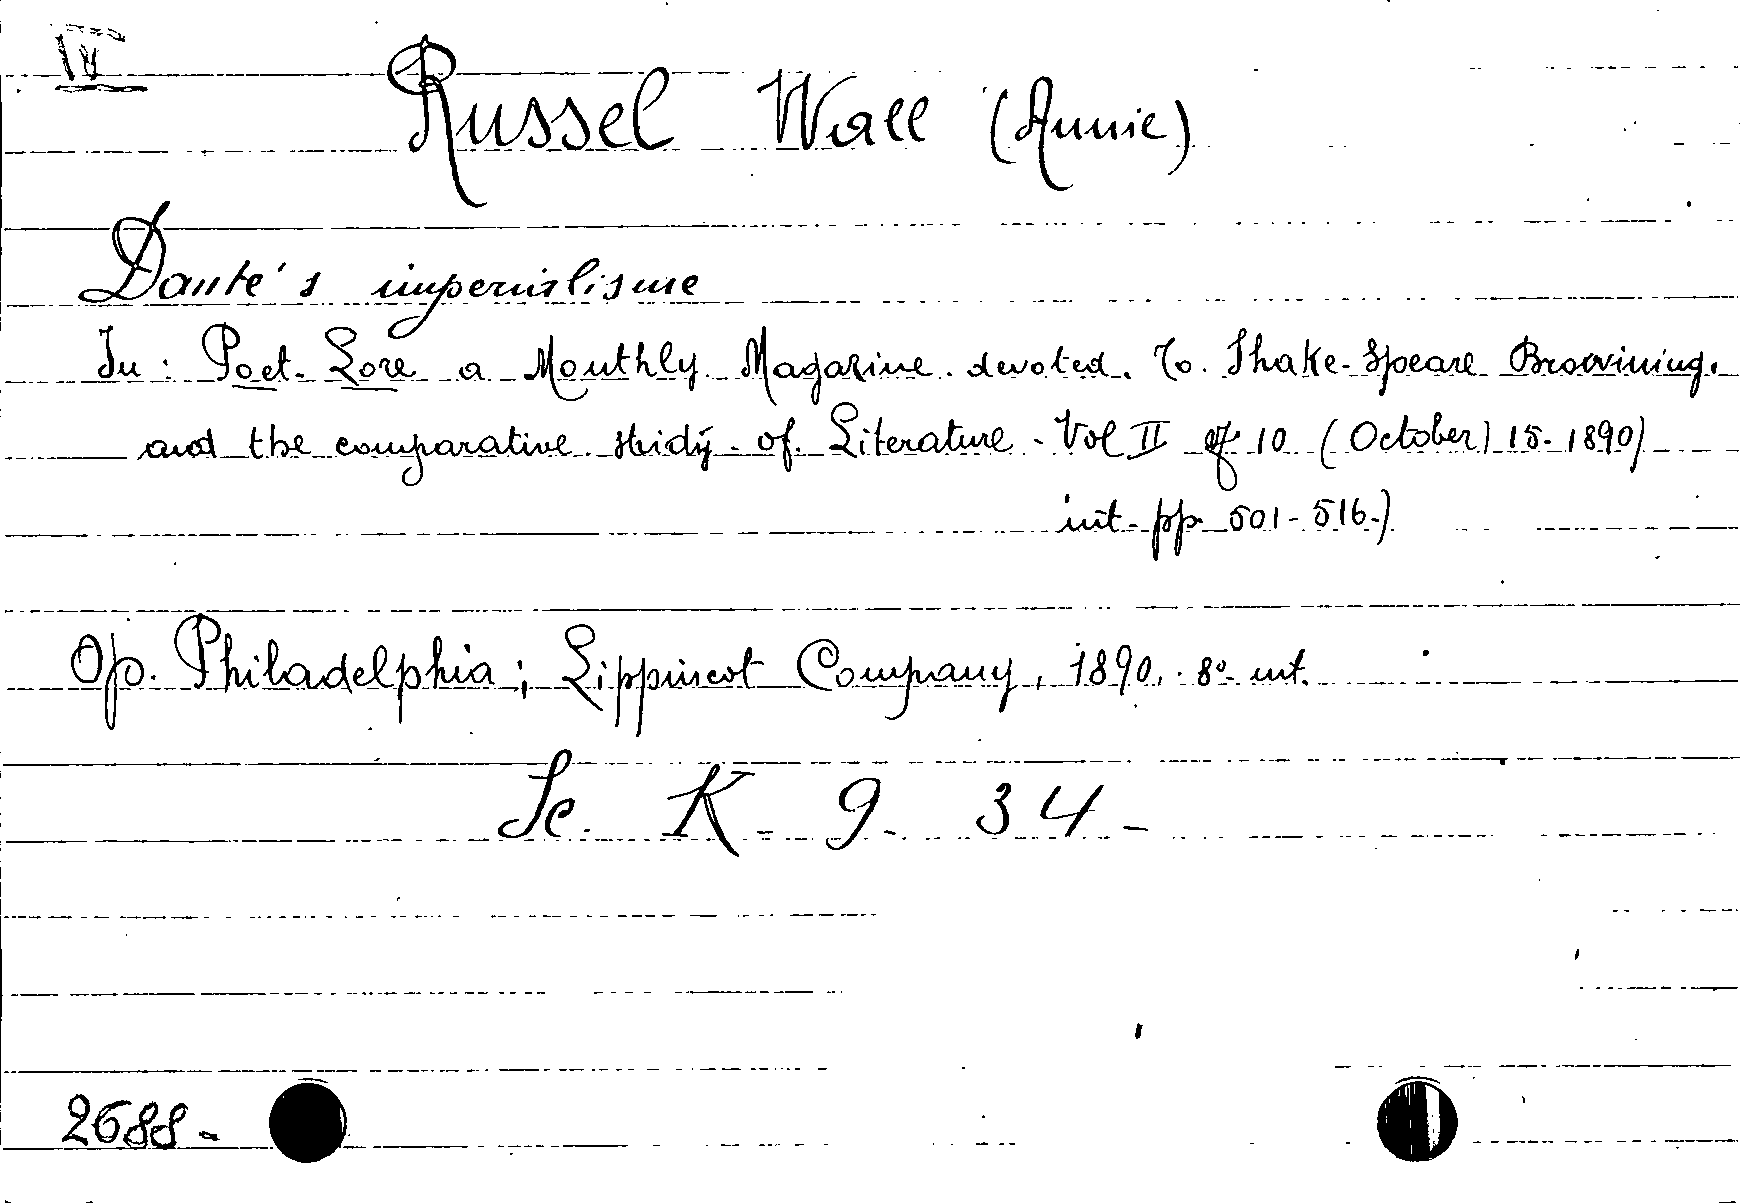 IV
Russel Wall (Annie)
Dante's imperialisme
In: Poet-Lore a Monthly Magazine devoted. To. Shake-Speare Browining.
and the comparative study of Literature - Vol II 10 (October) 15-1890)
int. pp. 501-516-)
Op. Philadelphia; Lippincot Company, 1890. 8º int.
Se. K - 9 - 34 -
2688-